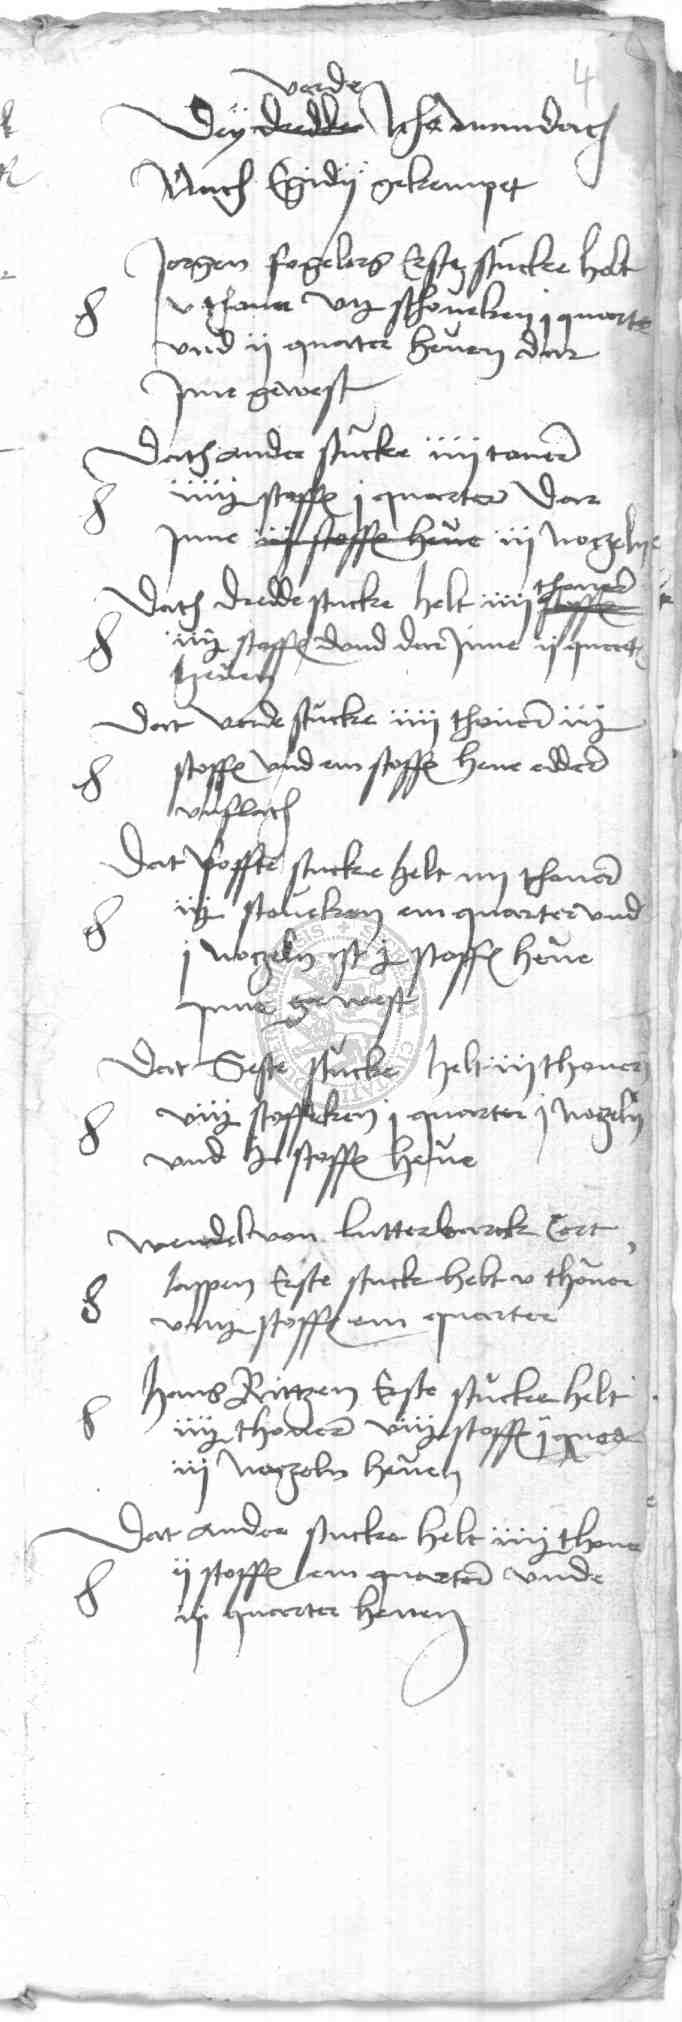 4
verde
Dey dredde Ame mandach
Nach Egidij gekempet
Jorgen fogelers Erste stucke helt
v thoner vij stoueken j quarte
vnd ij quater heuen dar
Jnne gewest
Dath ander stucke iiij toner
iiij stoffe j quarter dar
Jnne iij stoffe heue iij Nogelyn
Dath dredde stucke helt iiij stoffe thoner
iiij stoffe vnd dar Jnne ij quart
heuen
Dat verde stucke iiij thoner iij
stoffe vnd em stoffe heue edder
vnflath
Dat voffte stucke helt iiij thoner
iij stoueken em quarter vnd
j Nogeln ist j stoffe heue
Jnne gewest
Dat Seste stucke helt iij thoner
viij stoffeken j quarter j Nogeln
vnd stoffe heue
Wendel von Lutterbarck Cort
Jappen Erste stucke helt v thoner
viij stoffe em quarter
Hans Rittzen Erste stucke helt
iiij thoner viij stoffe j quar
iij Nogeln heuen
Dat ander stucke helt iiij thone
ij stoffe em quarter vnde
ij quarter heuen